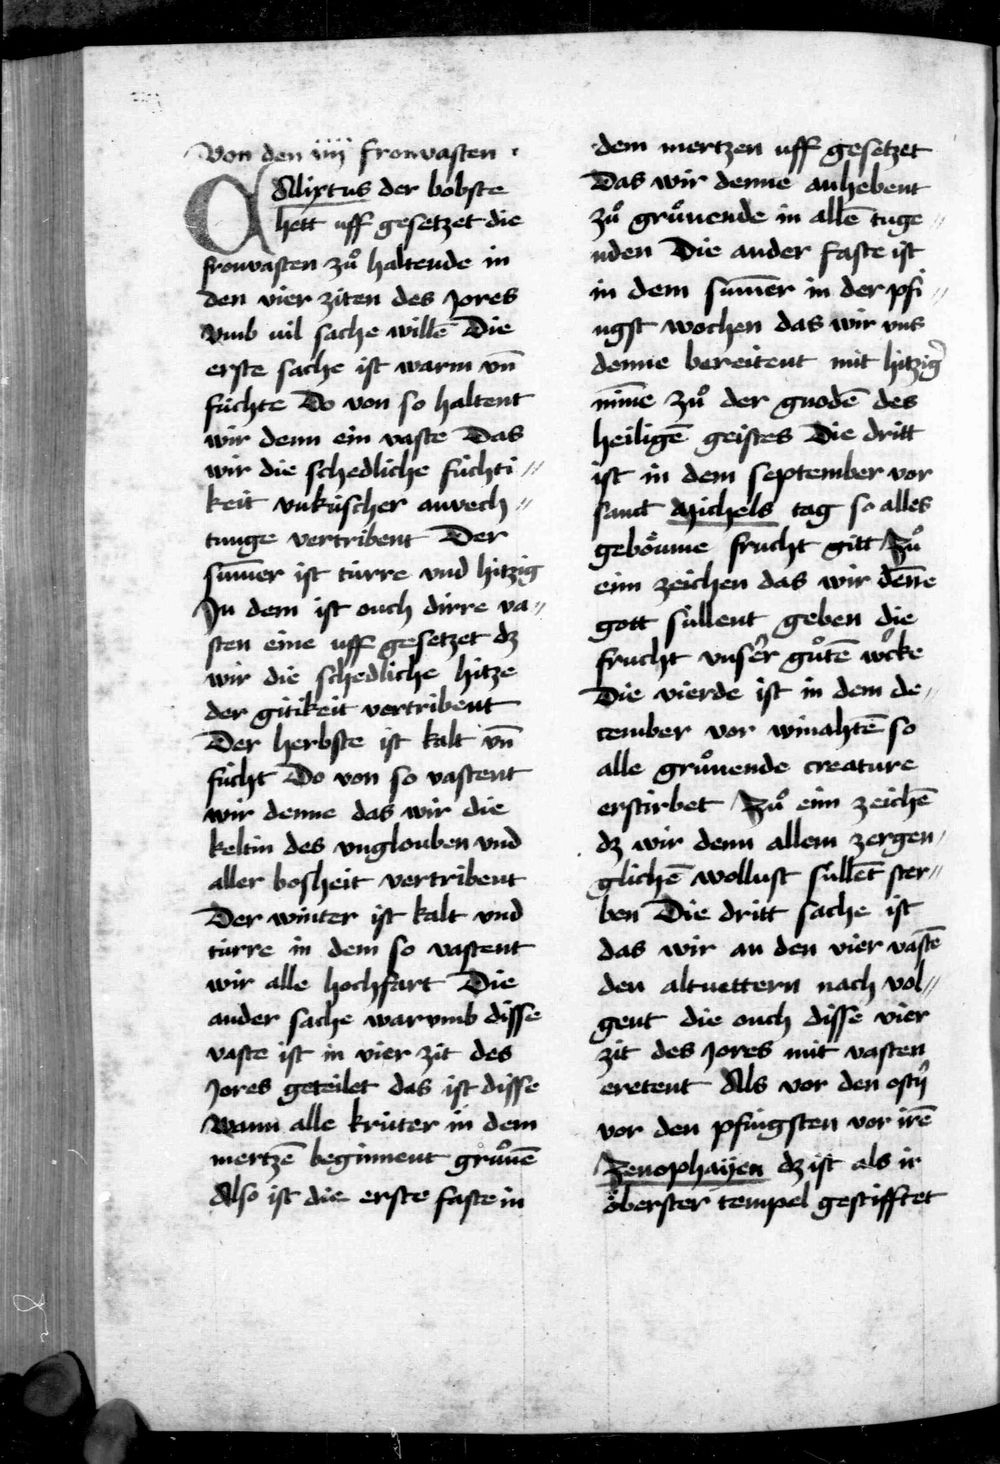 Von den iiij fronvasten ·
CAllixtus der bobste
hett uff gesetzet die
fronvasten zů haltende in
den vier ziten des Jores
Vmb uil sache willē Die
erste sache ist warm vn̄
fúchte Do von so haltent
wir denn ein vaste Das
wir die schedliche fúchti //
keit vnkúscher anvech //
tunge vertribent Der
sum̄er ist túrre vnd hitzig
In dem ist ouch dirre va //
sten eine uff gesetzet dz
wir die schedliche hitze
der gitikeit vertribent
Der herbste ist kalt vn̄
fúcht Do von so vastent
wir denne das wir die
keltin des vnglouben vnd
aller bosheit vertribent
Der winter ist kalt vnd
túrre in dem so vastent
wir alle hochfart Die
ander sache warvmb disse
vaste ist in vier zit des
Jores geteilet das ist disse
Wann alle krúter in dem
mertzē beginnent grůnē
Also ist die erste faste in
dem mertzen uff gesetzet
Das wir denne anhebent
zů grůnende in allē tuge //
nden Die ander faste ist
in dem sum̄er in der pfi //
ngst wochen das wir vns
denne bereitent mit hitzig̉
mīne zů der gnodē des
heiligē geistes Die dritt
ist in dem september vor
sanct Michels tag so alles
geboͤume frucht gitt Zů
eim zeichen das wir den̄e
gott súllent geben die
frucht vnser̉ gůtē wͦcke
Die vierde ist in dem de //
cember vor winahtē so
alle grůnende creature
erstirbet Zů eim zeichē
dz wir denn allem zergen //
glichē wollust súllēt ster //
ben Die dritt sache ist
das wir an den vier vastē
den altuettern nach vol //
gent die ouch disse vier
zit des Jores mit vasten
eretent Als vor den ostȷ̉
vor den pfingsten vor irē
Zenophaijen dz ist als ir
oͤberster tempel gestifftet